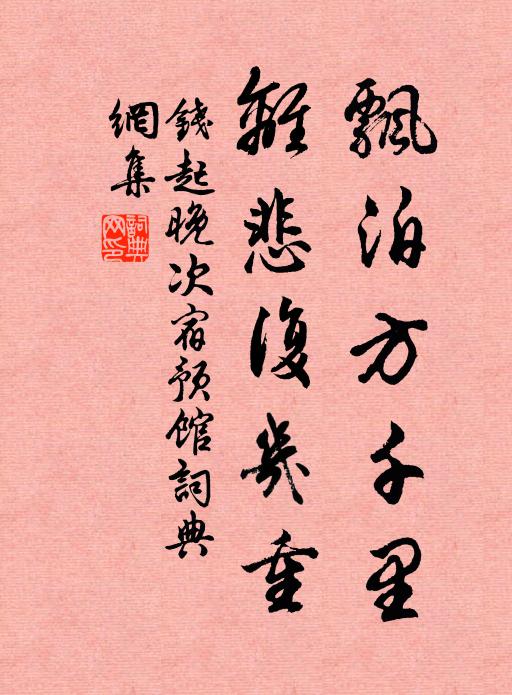 飄泊方千里
離悲復幾重
錢起晚次宿預館詞典
網集
詞典網印